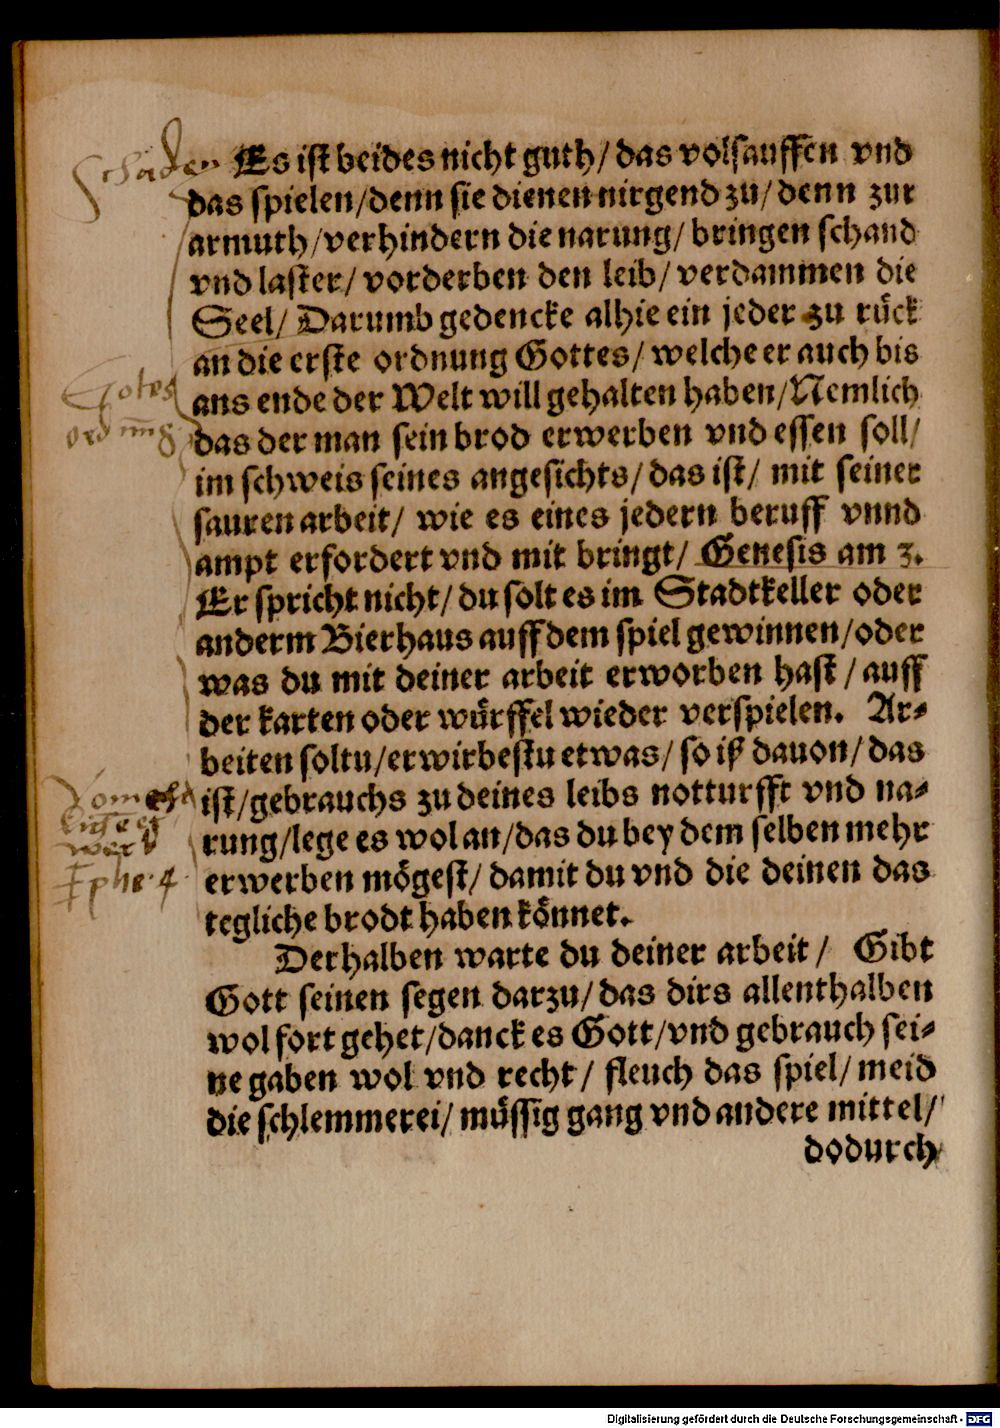 Schaden
Es ist beides nicht guth/ das volsauffen vnd
das spielen/denn sie dienen nirgend zu/ denn zur
armuth/verhindern die narung/ bringen schand
vnd laster/ vorderben den leib/ verdammen die
Seel/ Darumb gedencke alhie ein jeder zu rück
an die erste ordnung Gottes/ welche er auch bis
Gotes
ans ende der Welt will gehalten haben/Nemlich
das der man sein brod erwerben vnd essen soll/
im schweis seines angesichts/ das ist/ mit seiner
sauren arbeit/ wie es eines jedern beruff vnnd
ampt erfordert vnd mit bringt/ Genesis am 3.
Er spricht nicht/ du solt es im Stadtkeller oder
anderm Bierhaus auff dem spiel gewinnen/oder
was du mit deiner arbeit erworben hast/ auff
der karten oder würffel wieder verspielen. Ar-
beiten soltu/erwirbestu etwas/ so iß dauon/ das
ist/gebrauchs zu deines leibs notturfft vnd na-
rung/lege es wol an/das du bey dem selben mehr
Ephe. 4
erwerben mögest/ damit du vnd die deinen das
tegliche brodt haben könnet.
Derhalben warte du deiner arbeit/ Gibt
Gott seinen segen darzu/ das dirs allenthalben
wol fort gehet/danck es Gott/vnd gebrauch sei-
ne gaben wol vnd recht/ fleuch das spiel/ meid
die schlemmerei/ müssig gang vnd andere mittel/
dodurch
Digitalisierung gefördert durch die Deutsche Forschungsgemeinschaft - DFG